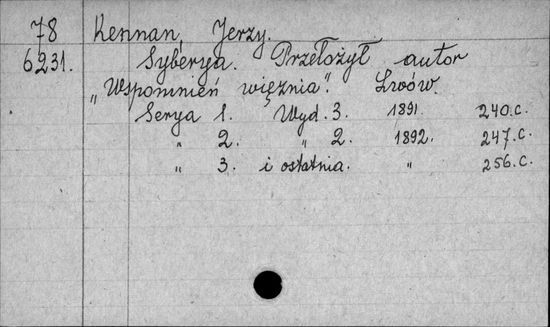 78 Kennan, Jerzy.
6231. Syberya. Przełożył autor
„Wspomnień więźnia". Lwów.
Serya 1. Wyd. 3. 1891. 240.c.
„ 2. „ 2. 1892. 247.c.
„ 3. i ostatnia. „ 256.c.